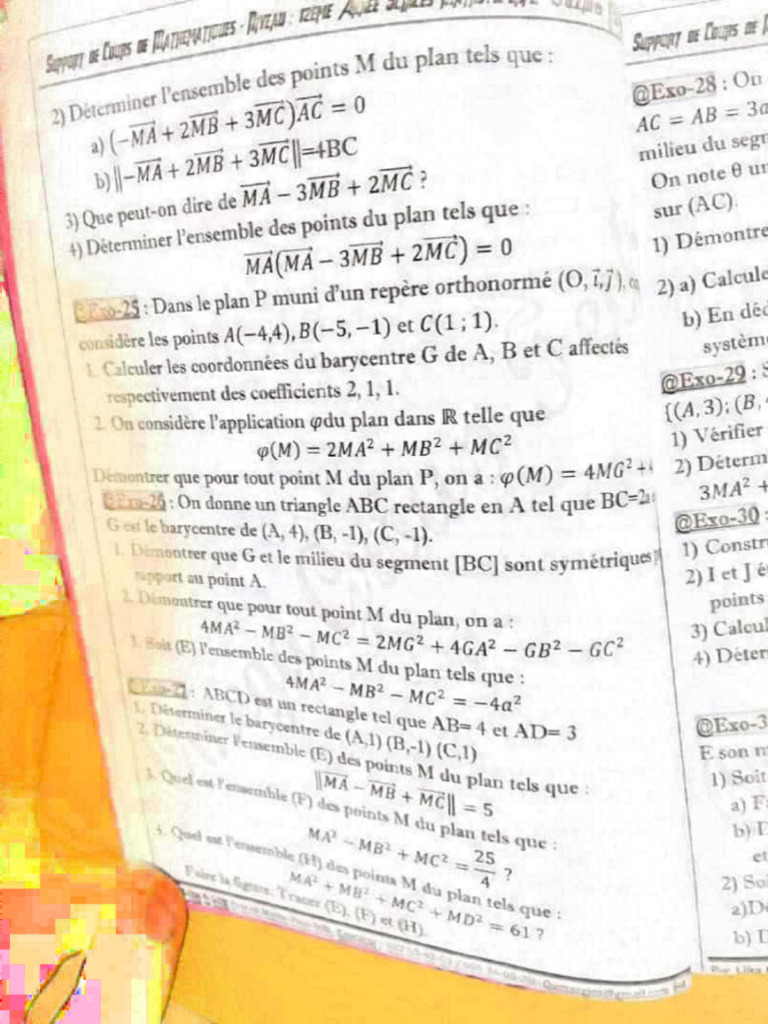 SUPPORT DE COURS DE MATHEMATIQUES - NIVEAU : 12EME ANNEE SCIENCES
2) Déterminer l'ensemble des points M du plan tels que :
a) (−MA⃗ + 2MB⃗ + 3MC⃗)AC⃗ = 0
b) ||−MA⃗ + 2MB⃗ + 3MC⃗||=4BC
3) Que peut-on dire de MA⃗ − 3MB⃗ + 2MC⃗ ?
4) Déterminer l'ensemble des points du plan tels que :
MA⃗(MA⃗ − 3MB⃗ + 2MC⃗) = 0
@Exo-25 : Dans le plan P muni d'un repère orthonormé (O, i⃗, j⃗),
considère les points A(−4,4), B(−5, −1) et C(1 ; 1).
1. Calculer les coordonnées du barycentre G de A, B et C affectés
respectivement des coefficients 2, 1, 1.
2. On considère l'application φdu plan dans ℝ telle que
φ(M) = 2MA² + MB² + MC²
Démontrer que pour tout point M du plan P, on a : φ(M) = 4MG² +
@Exo-26 : On donne un triangle ABC rectangle en A tel que BC=2a
G est le barycentre de (A, 4), (B, -1), (C, -1).
1. Démontrer que G et le milieu du segment [BC] sont symétriques
rapport au point A.
2. Démontrer que pour tout point M du plan, on a :
4MA² − MB² − MC² = 2MG² + 4GA² − GB² − GC²
3. Soit (E) l'ensemble des points M du plan tels que :
4MA² − MB² − MC² = −4a²
@Exo-27 : ABCD est un rectangle tel que AB= 4 et AD= 3
1. Déterminer le barycentre de (A,1) (B,-1) (C,1)
2. Déterminer l'ensemble (E) des points M du plan tels que :
||MA⃗ − MB⃗ + MC⃗|| = 5
3. Quel est l'ensemble (F) des points M du plan tels que :
MA² − MB² + MC² = 25/4 ?
4. Quel est l'ensemble (H) des points M du plan tels que :
MA² + MB² + MC² + MD² = 61 ?
Faire la figure. Tracer (E), (F) et (H).
SUPPORT DE COURS DE
@Exo-28 : On
AC = AB = 3a
milieu du
On note θ
sur (AC).
1) Démontre
2) a) Calcule
b) En
@Exo-29 :
{(A, 3); (B,
1) Vérifier
2) Déterm
3MA² +
@Exo-30 :
1) Constr
2) I et J
points
3) Calcul
4) Déter
@Exo-3
E son
1) Soit
a)
b)
et
2)
a)
b)